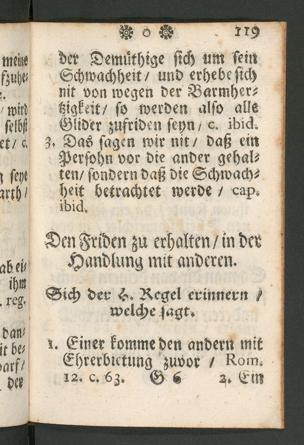 ❋ o ❋ 119
der Demüthige sich um sein
Schwachheit / und erhebe sich
nit von wegen der Barmher-
tzigkeit / so werden also alle
Glider zufriden seyn / c. ibid.
3. Das sagen wir nit / daß ein
Persohn vor die ander gehal-
ten / sondern daß die Schwach-
heit betrachtet werde / cap.
ibid.
Den Friden zu erhalten / in der
Handlung mit anderen.
Sich der H. Regel erinnern /
welche sagt.
1. Einer komme den andern mit
Ehrerbietung zuvor / Rom.
12. c. 63. G 6 2. Ein
meine
wird
selbst
seyn
ab ei-
ihm
reg.
dan-
it be-
darf /
der